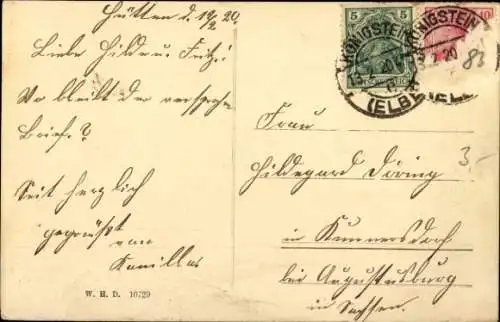 Hütten d. 19/2 20.
Liebe Hilde u. Fritz!
Wo bleibt der versproch.
Brief.?
Seit herzlich
gegrüßt
von
Kamillas
W. H. D. 10729
5
10
KÖNIGSTEIN
(ELBE)
KÖNIGSTEIN
83
3.-
Frau
Hildegard Döring
in Kunnersdorf
bei Augustusburg
in Sachsen.